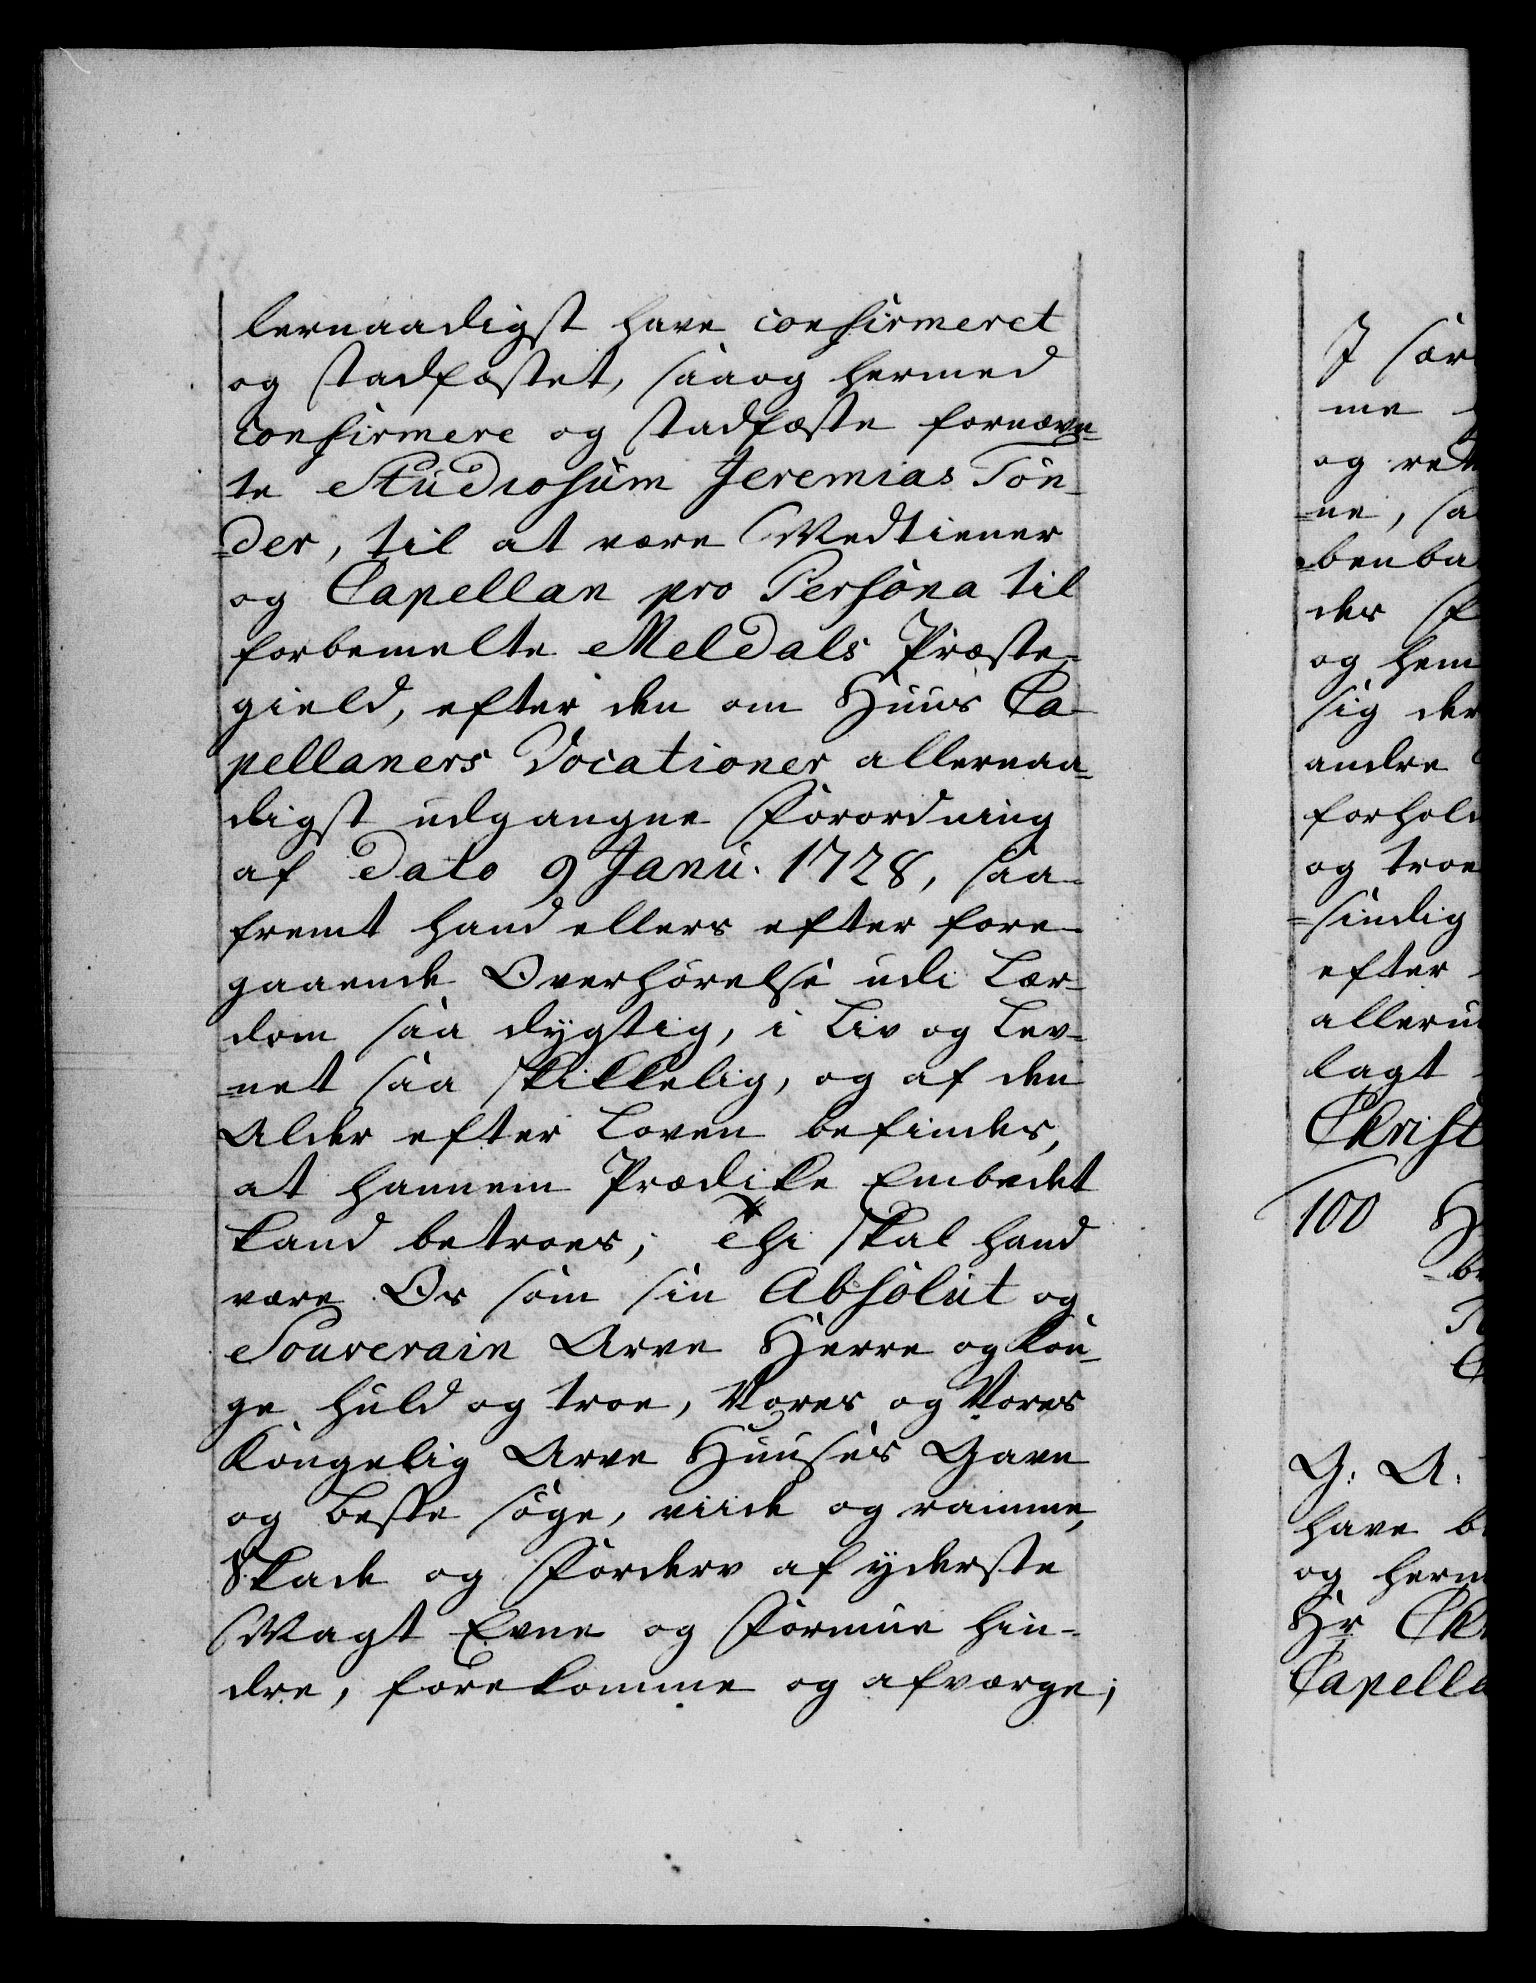 lernaadigst have confirmeret
og stadfæstet, saaog hermed
confirmere og stadfæste fornævn-
te Studiosum Jeremias Tön-
-der, til at være Medtiener
og Capellan pro Persona til
forbemelte Meldals Præste-
gield, efter den om Huus Ca-
pellaners Vocationer allernaa-
digst udgangne Forordning
af Dato 9 Janu. 1728, saa-
fremt hand ellers efter fore-
gaaende Overhörelse udi Lær-
dom saa dygtig, i Liv og Lev-
-net saa skikkelig, og af den
Alder efter Loven befindes,
at hannem Prædike Embedet
kand betroes; * Thi skal hand
være Os som sin Absolut og
Souverain Arve Herre og Kon-
ge huld og troe, Vores og Vores
Kongelig Arve Huuses Gavn
og Beste söge, viide og ramme,
Skade og Forderv af yderste
Magt Evne og Formue hin-
dre, forekomme og afværge;
I
me
og
-ne,
der
og
sig der
andre
og troe
-sindig
efter
lagt
100
G: A:
have
og
Hr